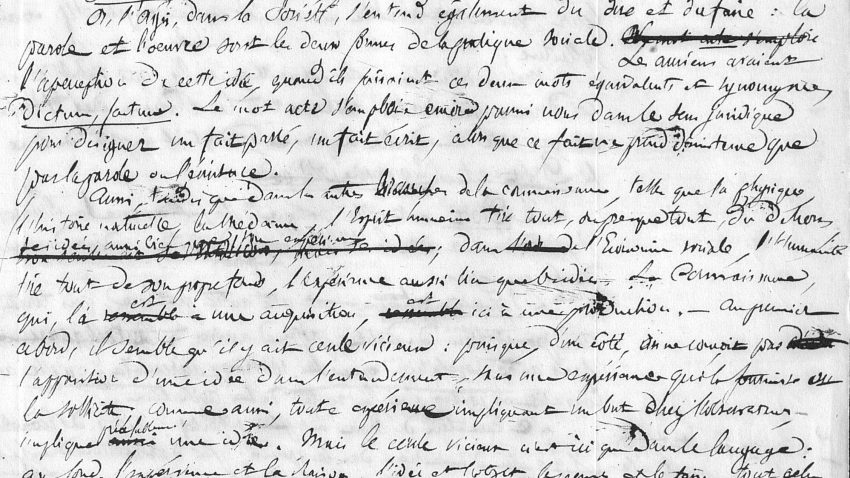 Or, l'agir, dans la Société, s'entend également du dire et du faire : la
parole et l'œuvre sont les deux formes de la pratique sociale.
Les anciens avaient
l'aperception de cette idée, quand ils faisaient ces deux mots équivalents et synonymes,
dictum, factum. Le mot acte s'emploie encore parmi nous dans le sens juridique
pour désigner un fait passé, un fait écrit, alors que ce fait ne prend d'existence que
par la parole ou l'écriture.
Aussi, tandis que dans les autres branches de la connaissance, telles que la physique
l'histoire naturelle, la médecine, l'Esprit humain tire tout, ou presque tout, du dehors,
ses idées, aussi bien que ; dans l'Economie sociale, l'Humanité
tire tout de son propre fonds, l'expérience aussi bien que l'idée. La Connaissance,
qui, là est une acquisition, est ici une production. — Au premier
abord, il semble qu'il y ait cercle vicieux : puisque, d'un côté, on ne conçoit pas
l'apparition d'une idée dans l'entendement, sans une expérience qui la fournisse ou
la sollicite, comme aussi, toute expérience impliquant un but chez l'observateur,
implique une idée. Mais le cercle vicieux n'est ici que dans le langage :
au fond, l'expérience et la raison, l'idée et l'objet, et le faire, tout cela